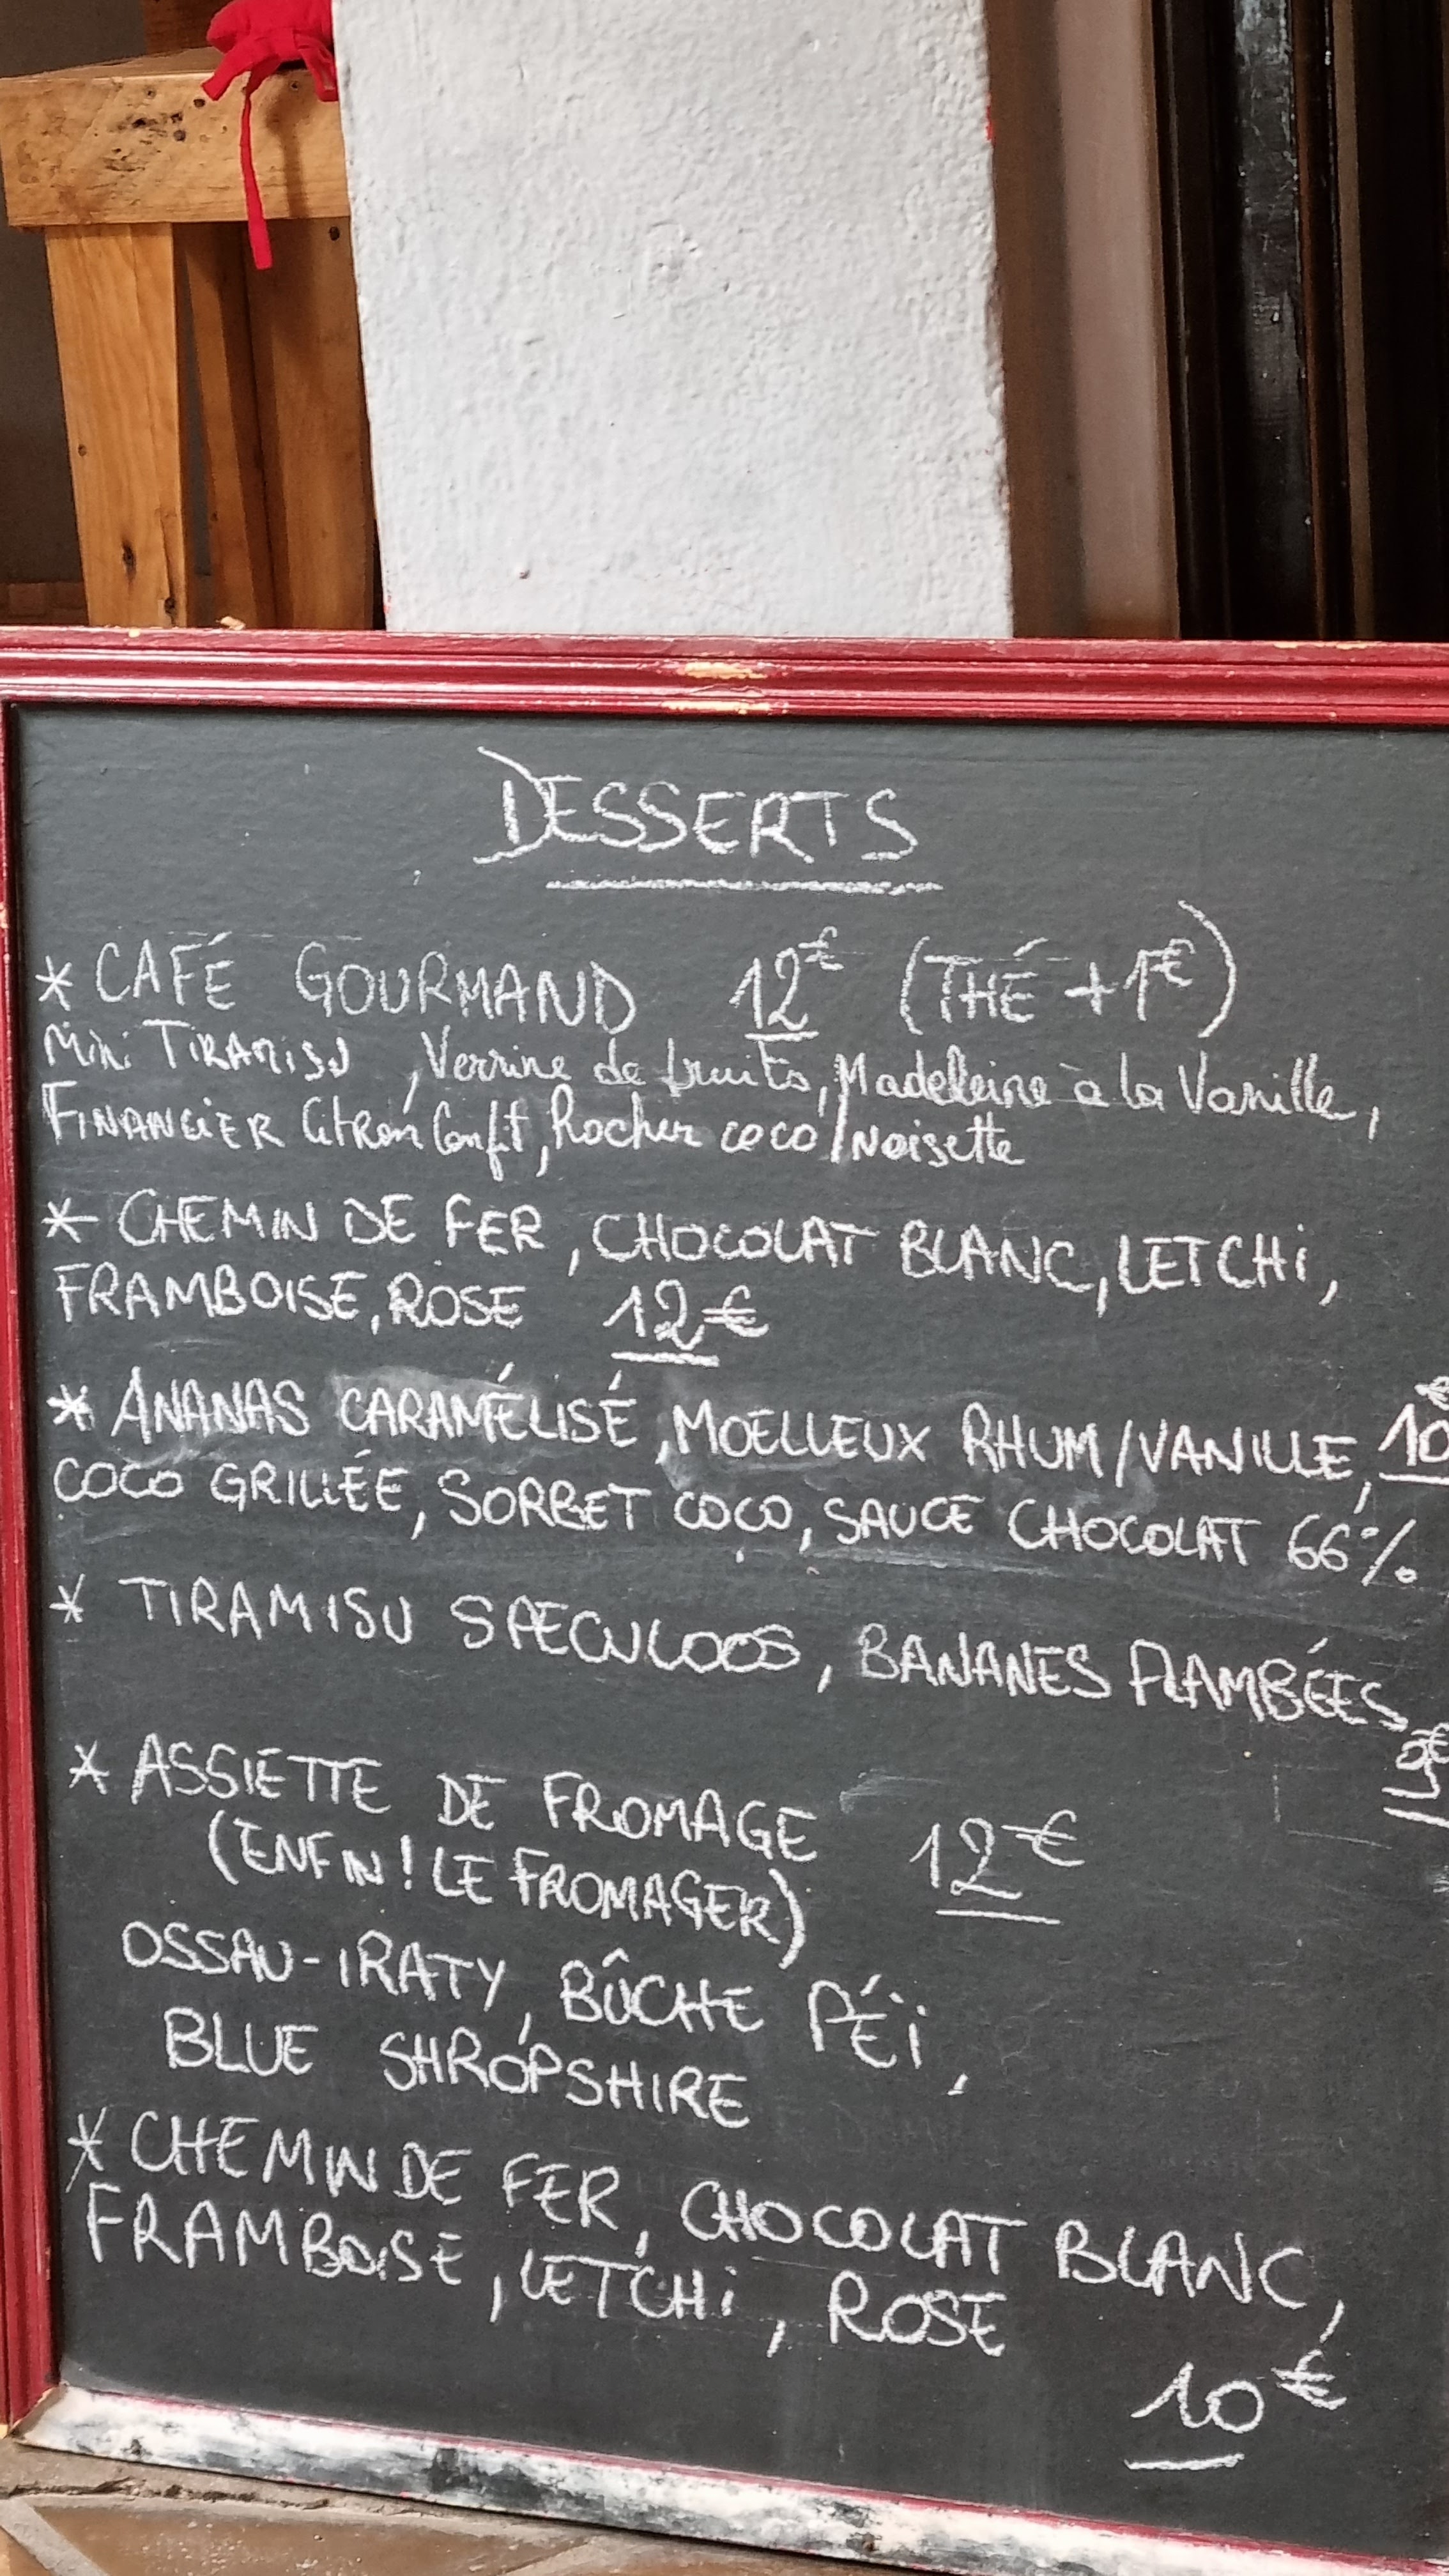 DESSERTS
* CAFÉ GOURMAND 12€ (THÉ +1€)
Mini TIRAMISU, Verrine de fruits, Madeleine à la Vanille,
FINANCIER Citron Confit, Rocher coco/Noisette
* CHEMIN DE FER, CHOCOLAT BLANC, LETCHi,
FRAMBOISE, ROSE 12€
* ANANAS CARAMÉLISÉ, MOELLEUX RHUM/VANILLE, 10€
COCO GRILLÉE, SORBET COCO, SAUCE CHOCOLAT 66%
* TIRAMISU SPECULOOS, BANANES FLAMBÉES
* ASSIETTE DE FROMAGE 12€
(ENFIN! LE FROMAGER)
OSSAU-IRATY, BÛCHE PÉï,
BLUE SHROPSHIRE
* CHEMIN DE FER, CHOCOLAT BLANC,
FRAMBOISE, LETCHi, ROSE
10€